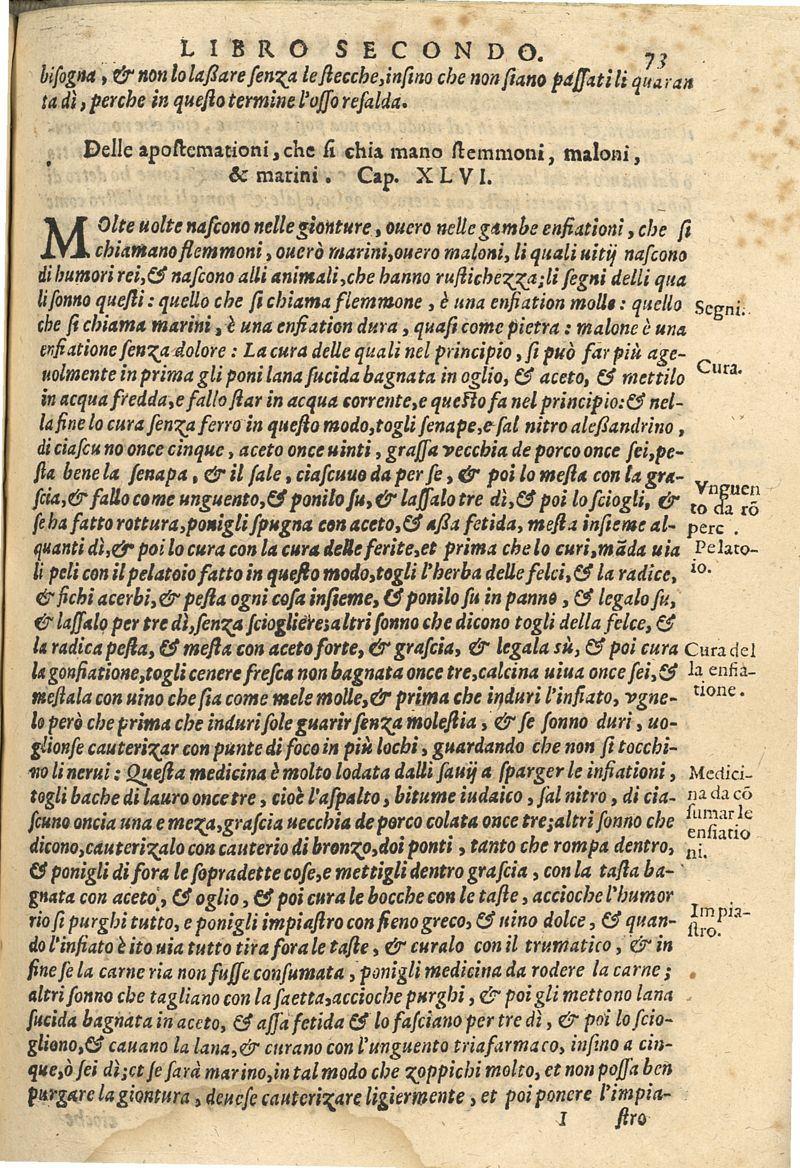 LIBRO SECONDO. 73
bisogna, & non lo laßare senza le stecche, insino che non siano passati li quaran
ta dì, perche in questo termine l'osso resalda.
Delle apostemationi, che si chia mano flemmoni, maloni,
& marini. Cap. XLVI.
MOlte uolte nascono nelle gionture, overo nelle gambe enfiationi, che si
chiamano flemmoni, overò marini, overo maloni, li quali uitij nascono
di humori rei, & nascono alli animali, che hanno rustichezza; li segni delli qua
li sonno questi: quello che si chiama flemmone, è una enfiation molle: quello
che si chiama marini, è una enfiation dura, quasi come pietra: malone è una
enfiatione senza dolore: La cura delle quali nel principio, si può far più age-
uolmente in prima gli poni lana sucida bagnata in oglio, & aceto, & mettilo
in acqua fredda, e fallo star in acqua corrente, e questo fa nel principio: & nel-
la fine lo cura senza ferro in questo modo, togli senape, e sal nitro aleßandrino,
di ciascuno once cinque, aceto once uinti, grassa vecchia de porco once sei, pe-
sta bene la senapa, & il sale, ciascuuo da per se, & poi lo mesta con la gra-
scia, & fallo come unguento, & ponilo su, & lassalo tre dì, & poi lo sciogli, &
se ha fatto rottura, ponigli spugna con aceto, & aßa fetida, mesta insieme al-
quanti dì, & poi lo cura con la cura delle ferite, et prima che lo curi, mãda uia
li peli con il pelatoio fatto in questo modo, togli l'herba delle felci, & la radice,
& fichi acerbi, & pesta ogni cosa insieme, & ponilo su in panno, & legalo su,
& lassalo per tre dì, senza sciogliere; altri sonno che dicono togli della felce, &
la radica pesta, & mesta con aceto forte, & grascia, & legala sù, & poi cura
la gonfiatione, togli cenere fresca non bagnata once tre, calcina uiua once sei, &
mestala con uino che sia come mele molle, & prima che induri l'infiato, vgne-
lo però che prima che induri sole guarir senza molestia, & se sonno duri, uo-
glionse cauterizar con punte di foco in più lochi, guardando che non si tocchi-
no li nerui: Questa medicina è molto lodata dalli sauij a sparger le infiationi,
togli bache di lauro once tre, cioè l'aspalto, bitume iudaico, sal nitro, di cia-
scuno oncia una e meza, grascia uecchia de porco colata once tre; altri sonno che
dicono, cauterizalo con cauterio di bronzo, doi ponti, tanto che rompa dentro,
& ponigli di fora le sopradette cose, e mettigli dentro grascia, con la tasta ba-
gnata con aceto, & oglio, & poi cura le bocche con le taste, accioche l'humor
rio si purghi tutto, e ponigli impiastro con fieno greco, & uino dolce, & quan-
do l'infiato è ito uia tutto tira fora le taste, & curalo con il trumatico, & in
fine se la carne ria non fusse consumata, ponigli medicina da rodere la carne;
altri sonno che tagliano con la saetta, accioche purghi, & poi gli mettono lana
sucida bagnata in aceto, & assa fetida & lo fasciano per tre dì, & poi lo scio-
gliono, & cauano la lana, & curano con l'unguento triafarmaco, insino a cin-
que, ò sei dì; et se sarà marino, in tal modo che zoppichi molto, et non possa ben
purgare la giontura, deuese cauterizare ligiermente, et poi ponere l'impia-
I stro
Segni.
Cura.
Vnguen
to da rõ
pere.
Pelato-
io.
Cura del
la enfia-
tione.
Medici-
na da cõ
sumar le
enfiatio
ni.
Impia-
stro.